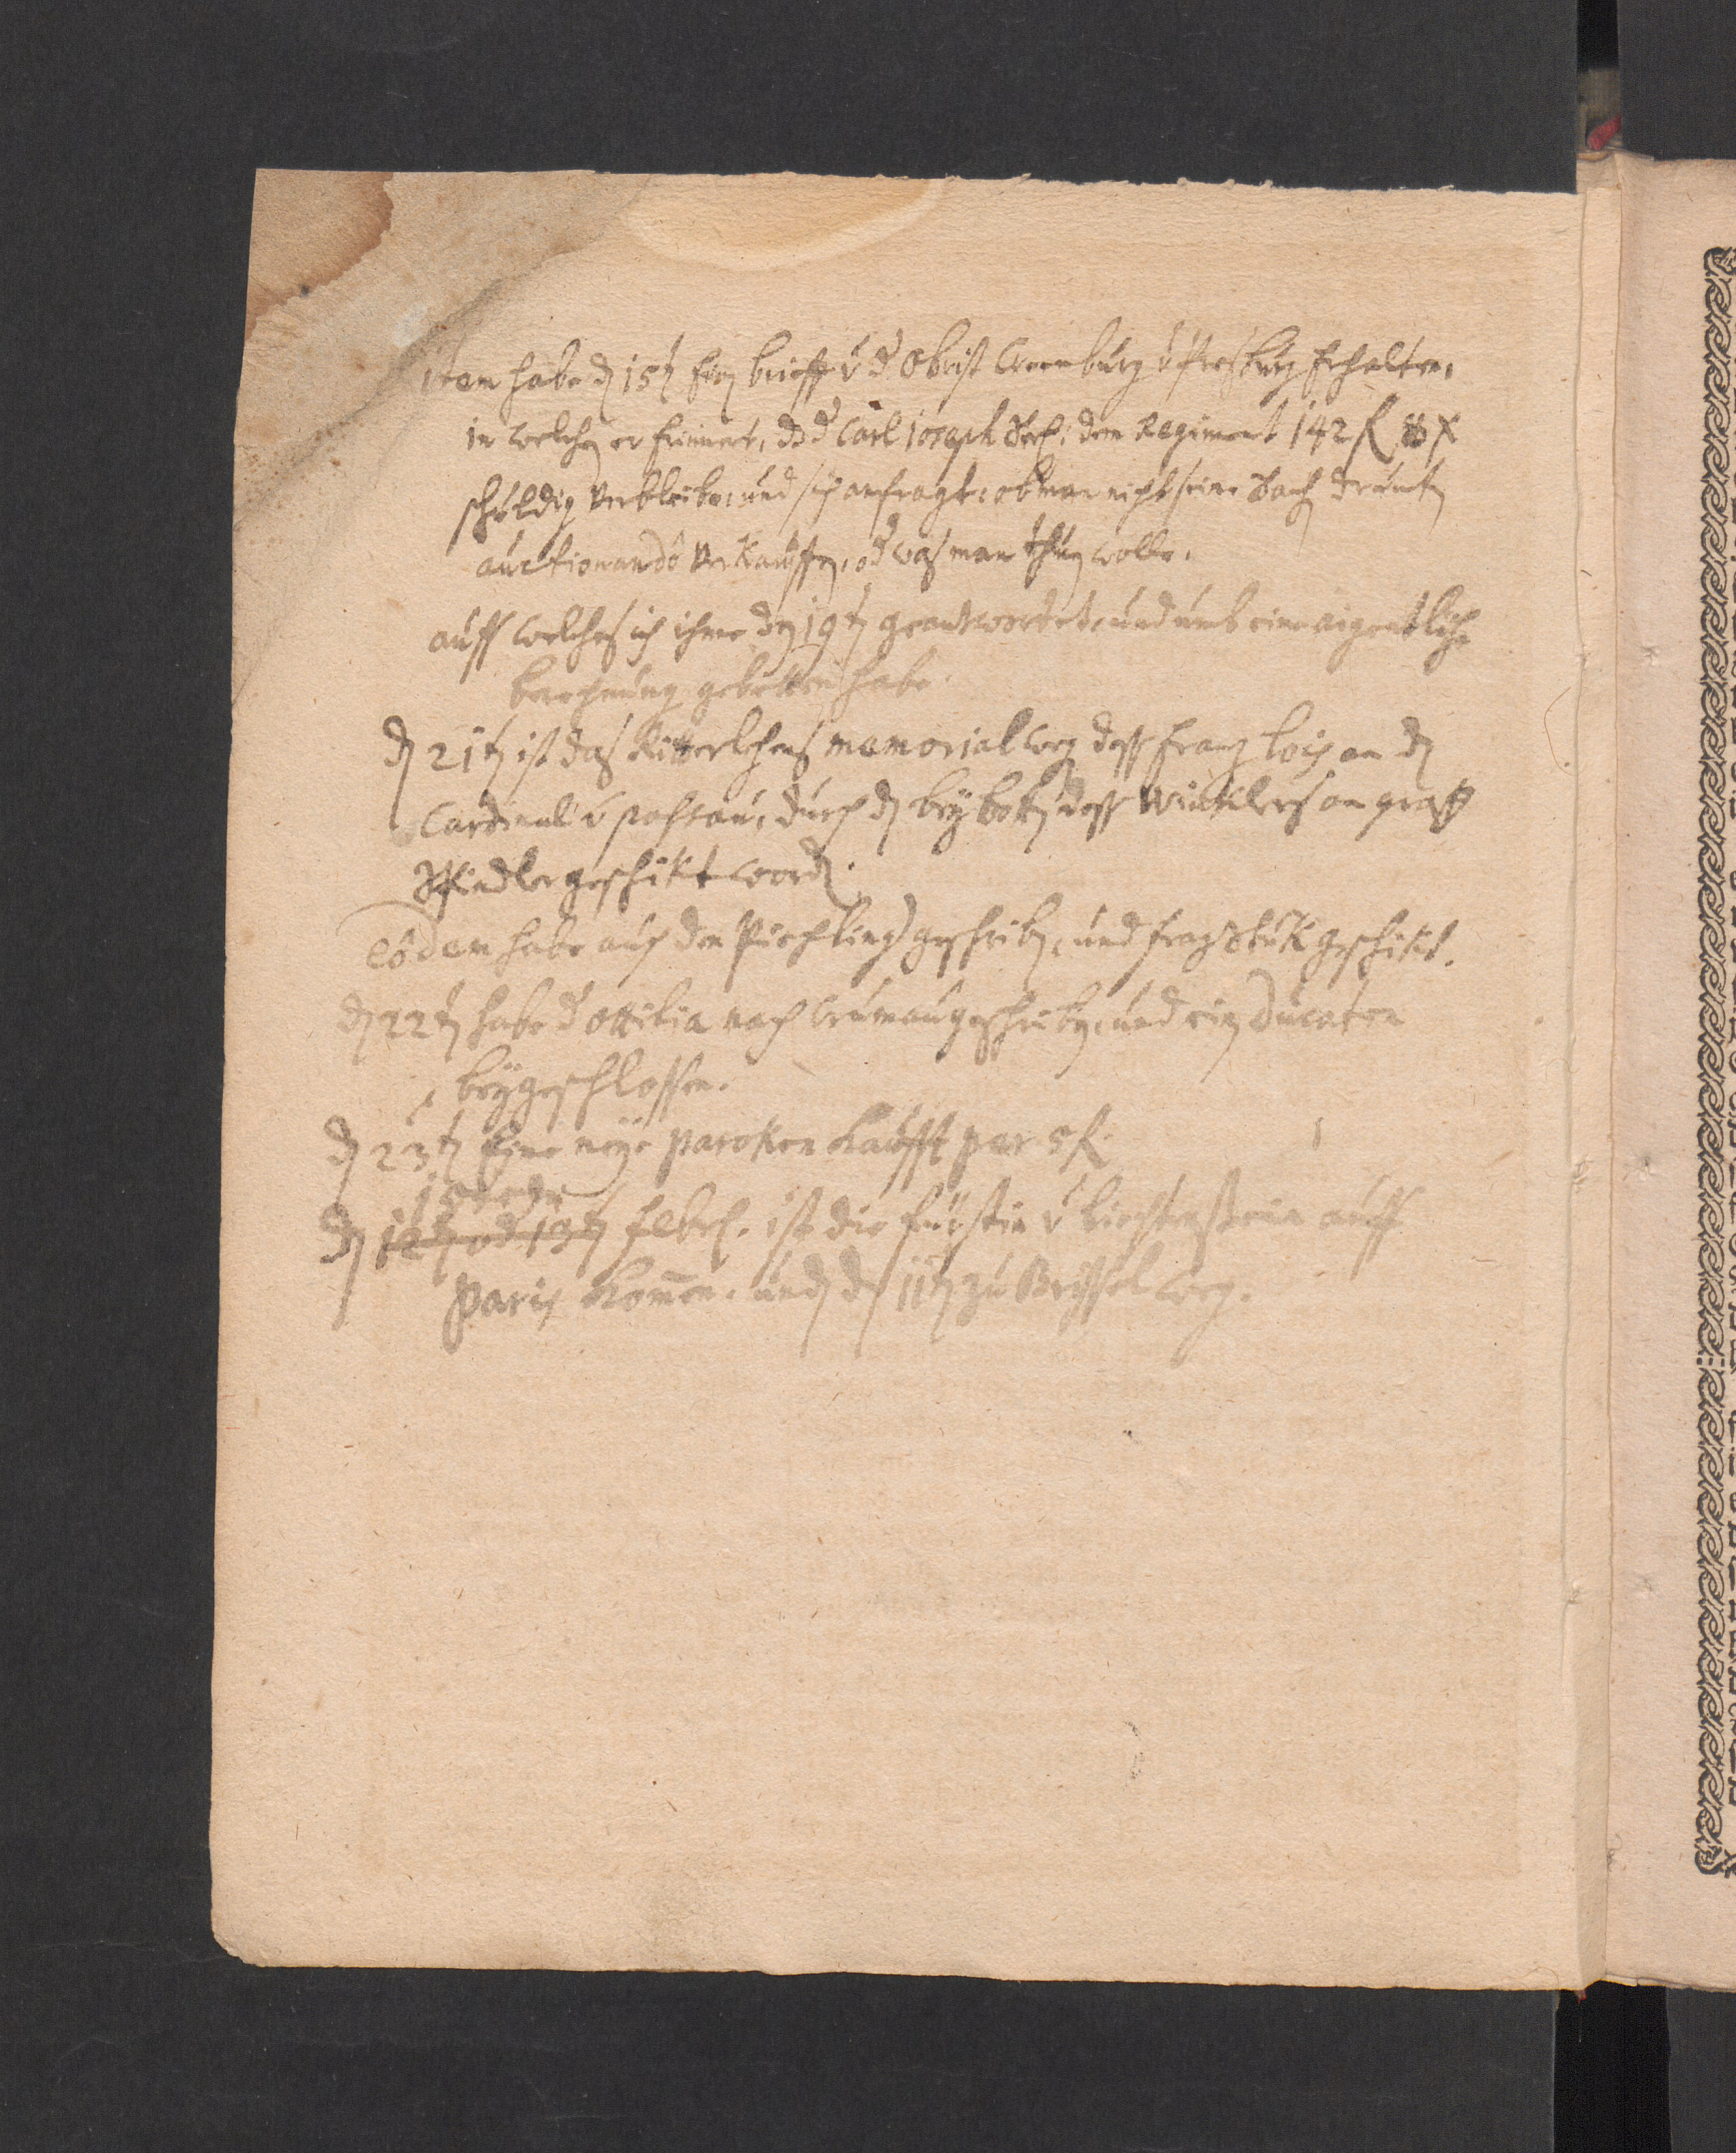 item habe den 15t ein brieff v d Obrist Cronburg v Presburg Erhalten,
in welchen er Erinnert, dz d Carl ioseph Seel: dem Regiment 142 fl
schuldig verbleibe, und sich anfragt, ob man nicht seine Sach drunten
auctionando verkauffen, od was man thun wolle.
auff welches ich ihme den 19t geantwortet, und umb eine aigentliche
berechnung gebetten habe.
den 21t ist das Ritterlehens memorial weg dess Franz an den
Cardinal v passau, durch den beybotten dess Winklers an graff
geschikt worden.
eodem habe auch den geschriben, und frag Stuk geschikt.
den 22t habe d ottilia nach Crumau geschriben, und ein Ducaten
beygeschlossen.
den 23t Eine neye paroken kaufft per 5 fl.
den 12t od 13t febr. ist die fürstin v Liechtenstein auff
Paris kommen. und den 11t zu Brissel weg.